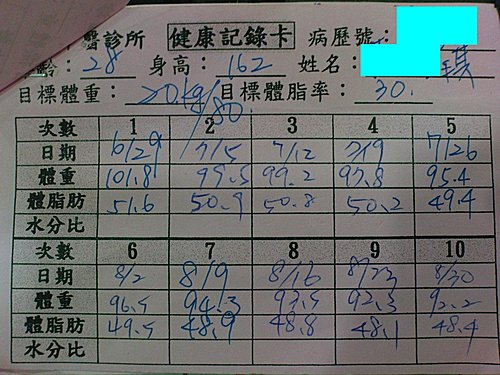 醫診所 健康記錄卡 病歷號:
齡: 28 身高: 162 姓名: 琪
目標體重: 20kg/80. 目標體脂率: 30.
次數 1 2 3 4 5
日期 6/29 7/5 7/12 7/19 7/26
體重 101.8 99.5 99.2 97.8 95.4
體脂肪 51.6 50.9 50.8 50.2 49.4
水分比
次數 6 7 8 9 10
日期 8/2 8/9 8/16 8/23 8/30
體重 96.5 94.3 93.5 92.3 92.2
體脂肪 49.5 48.9 48.8 48.1 48.4
水分比